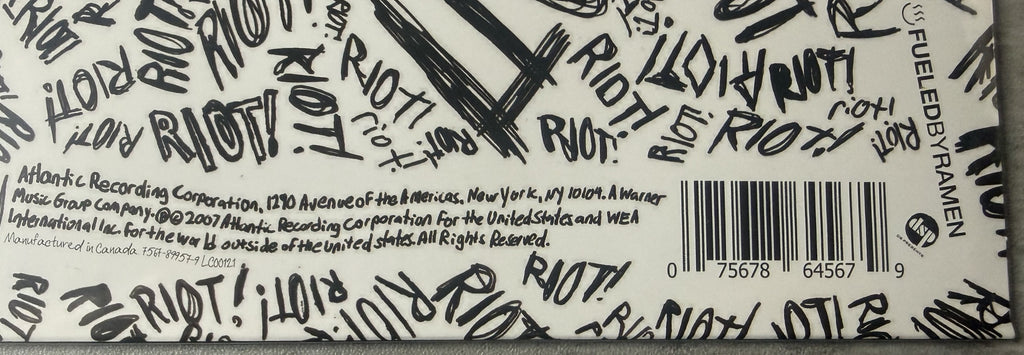 RIOT! RIOT! RIOT! RIOT!
RIOT! RIOT! RIOT! RIOT! RIOT! RIOT! RIOT!
RIOT! RIOT! riot! RIOT! RIOT! RIOT! RIOT! riot! RIOT!
FUELEDBYRAMEN
Atlantic Recording Corporation, 1290 Avenue of the Americas, New York, NY 10104. A Warner
Music Group Company. ℗© 2007 Atlantic Recording Corporation for the United States and WEA
International Inc. for the world outside of the United States. All Rights Reserved.
Manufactured in Canada 7567-89957-9 LC00121
0 75678 64567 9
RIOT! RIOT! RIOT! RIOT! RIOT! RIOT! RIOT! RIOT! RIOT! RIOT!